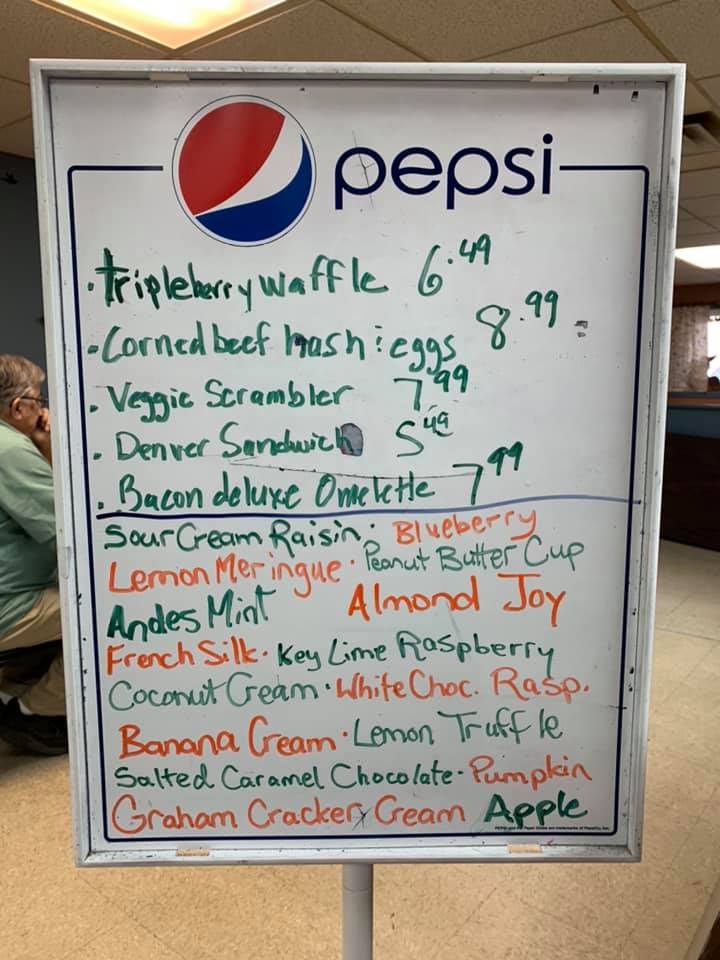 pepsi
· tripleberry waffle 6.49
· Corned beef hash : eggs 8.99
· Veggie Scrambler 7 99
· Denver Sandwich 5 49
· Bacon deluxe Omelette 7 99
Sour Cream Raisin · Blueberry
Lemon Meringue · Peanut Butter Cup
Andes Mint Almond Joy
French Silk · Key Lime Raspberry
Coconut Cream · White Choc. Rasp.
Banana Cream · Lemon Truffle
Salted Caramel Chocolate - Pumpkin
Graham Cracker Cream Apple